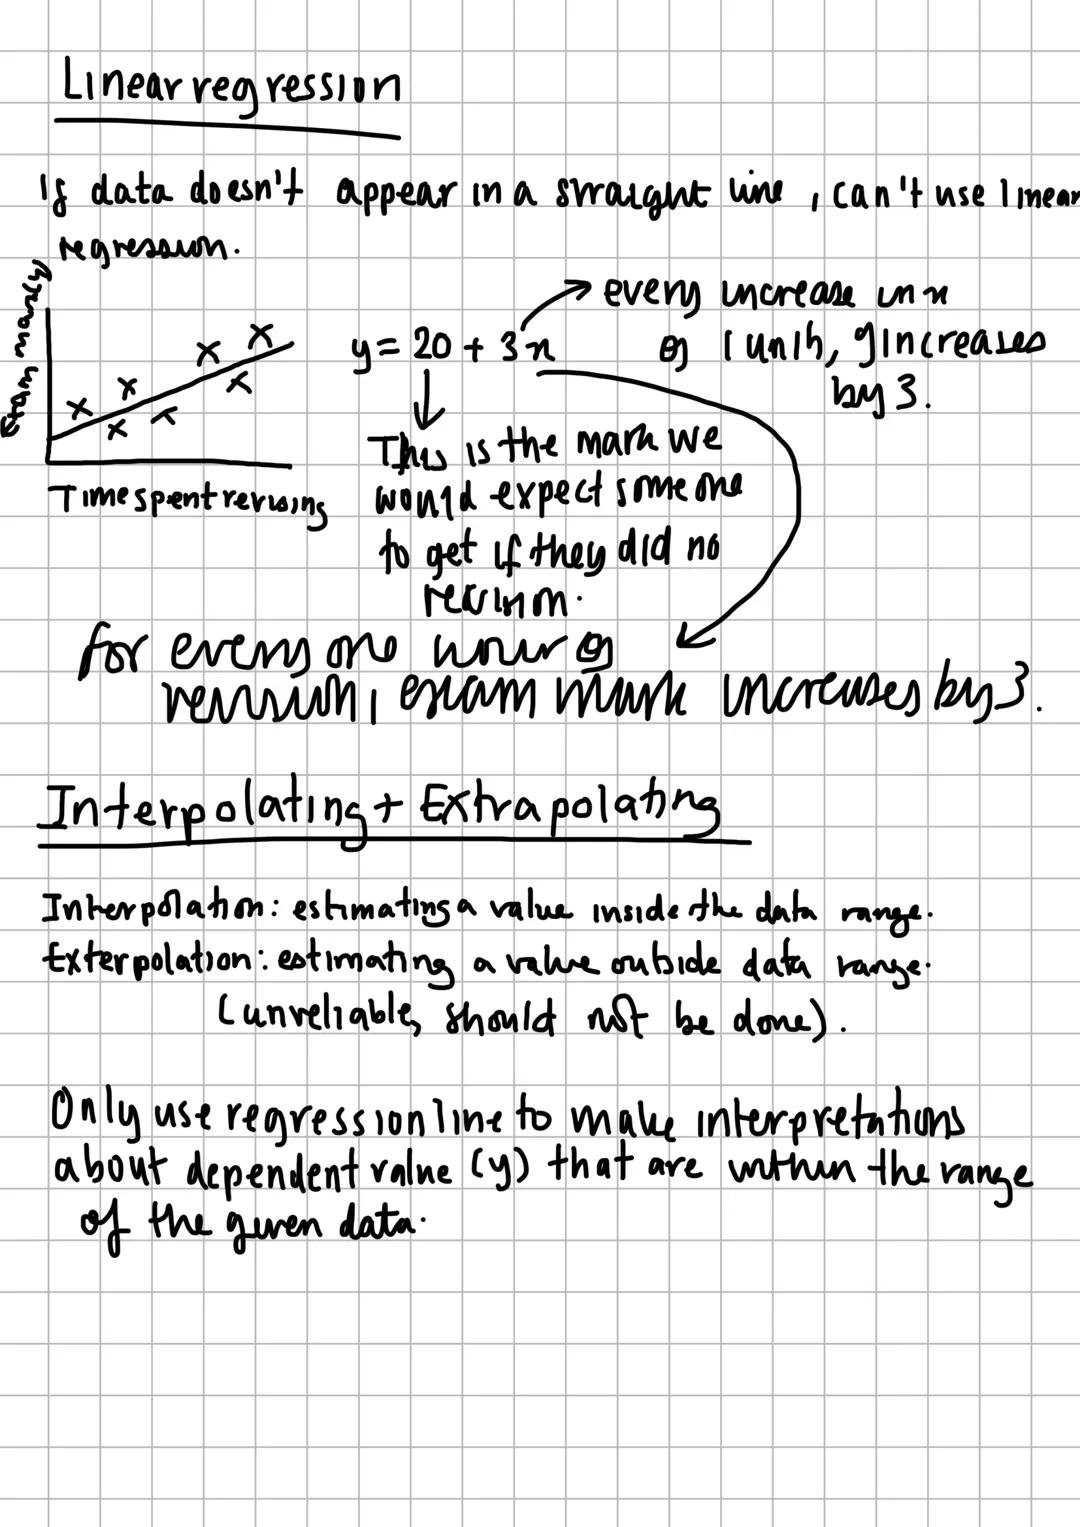 Linear regression
If data doesn't appear in a straight line, can't use linear
regression.
Exam marks
Time spent revising
y = 20 + 3x
every increase in x
of 1 unit, y increases
by 3.
This is the mark we
would expect someone
to get if they did no
revision.
for every one hour of
revision, exam mark increases by 3.
Interpolating + Extrapolating
Interpolation: estimating a value inside the data range.
Exterpolation: estimating a value outside data range.
(unreliable, should not be done).
Only use regression line to make interpretations
about dependent value (y) that are within the range
of the given data.